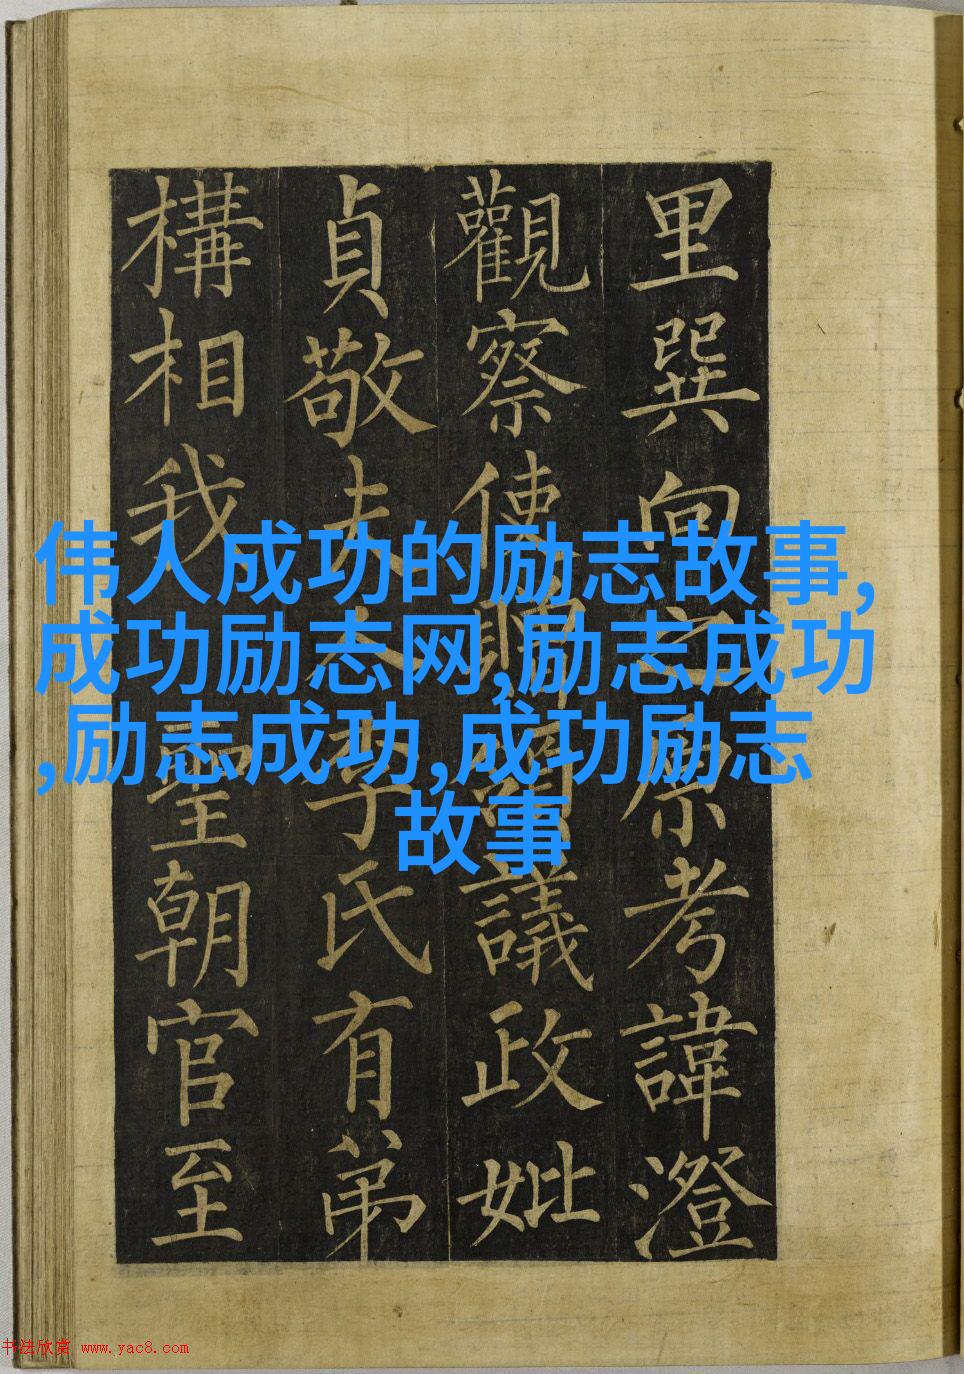 里巽向之原考諱澄
觀察使贈議政妣
貞敬夫人李氏有弟
構相我聖朝官至
伟人成功的励志故事,
成功励志网,励志成功
,励志成功,成功励志
故事
书法欣赏 www.yac8.com